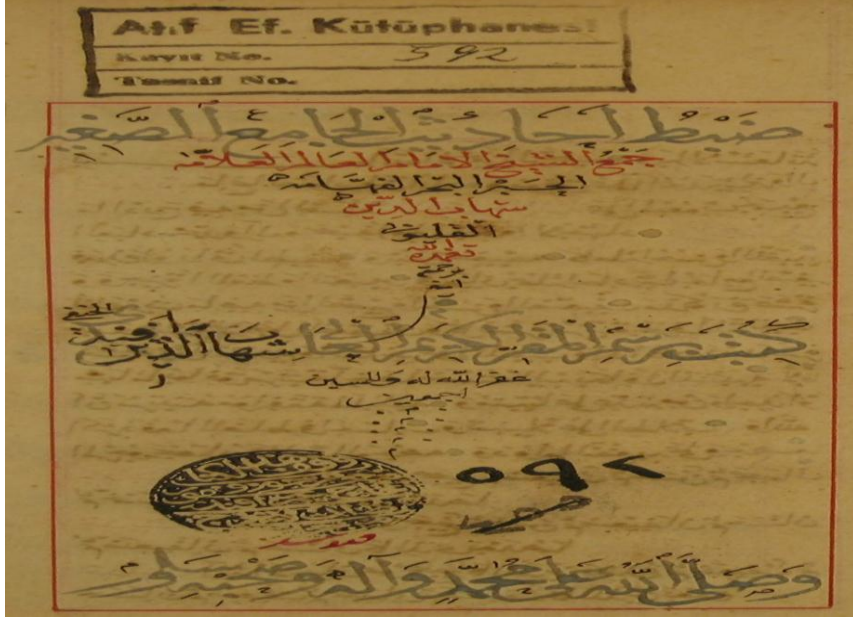 Atıf Ef. Kütüphanesi
Kayıt No. 592
Tasnif No.
ضَبْطُ أَحَادِيثُ الْجَامِعِ الصَّغِيرِ
جَمْعُ الشَّيْخِ الْإِمَامِ الْعَالِمِ الْعَلَّامَه
الْحَبْرِ الْبَحْرِ الْفَهَّامَه
شِهَابِ الدِّينِ
القليوبى
تغمده
الله
كُتِبَ بِرَسْمِ الْمَقَرِّ الْكَرِيمِ الْعَالِي شهاب الدين افندى
الحنفى
غفر الله له وللمسلمين
اجمعين
٥٩٢
وَصَلَّى اللَّهُ عَلَى مُحَمَّدٍ وَآلِهِ وَصَحْبِهِ وَسَلَّمَ